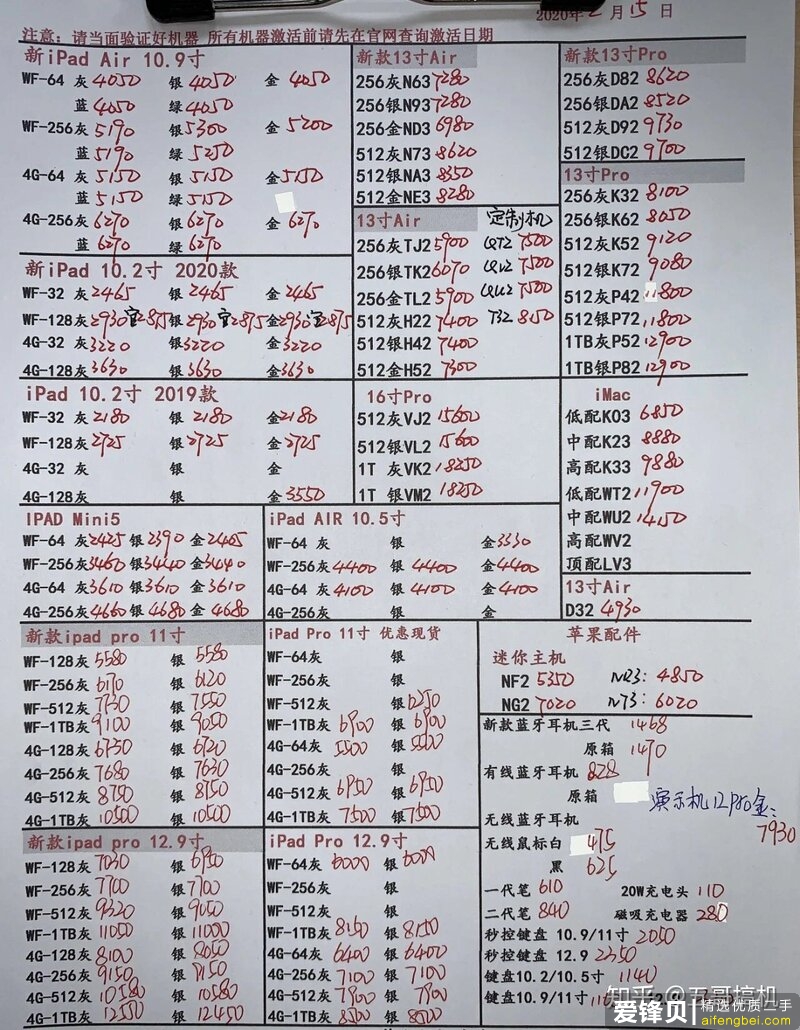 2020年2月15日
注意：请当面验证好机器 所有机器激活前请先在官网查询激活日期
新iPad Air 10.9寸
WF-64 灰 4050 银 4050 金 4050
蓝 4050 绿 4050
WF-256灰 5190 银 5300 金 5200
蓝 5190 绿 5250
4G-64 灰 5150 银 5150 金 5150
蓝 5150 绿 5150
4G-256灰 6270 银 6270 金 6270
蓝 6270 绿 6270
新iPad 10.2寸 2020款
WF-32 灰 2465 银 2465 金 2465
WF-128灰 2930 官2875 银 2930 官2875 金 2930 官2875
4G-32 灰 3220 银 3220 金 3220
4G-128灰 3630 银 3630 金 3630
iPad 10.2寸 2019款
WF-32 灰 2180 银 2180 金 2180
WF-128灰 2725 银 2725 金 2725
4G-32 灰 银 金
4G-128灰 银 金 3550
新款13寸Air
256灰N63 7280
256银N93 7280
256金ND3 6980
512灰N73 8620
512银NA3 8350
512金NE3 8280
13寸Air 定制机
256灰TJ2 5900 7500
256银TK2 6070 7500
256金TL2 5900 7500
512灰H22 7400 T32 8150
512银H42 7400
512金H52 7300
16寸Pro
512灰VJ2 15600
512银VL2 15600
1T 灰VK2 18250
1T 银VM2 18250
新款13寸Pro
256灰D82 8620
256银DA2 8520
512灰D92 9730
512银DC2 9700
13寸Pro
256灰K32 8100
256银K62 8050
512灰K52 9120
512银K72 9080
512灰P42 11800
512银P72 11800
1TB灰P52 12900
1TB银P82 12900
iMac
低配K03 6850
中配K23 8880
高配K33 9880
低配WT2 11900
中配WU2 14150
高配WV2
顶配LV3
13寸Air
D32 4930
IPAD Mini5
WF-64 灰 2425 银 2390 金 2465
WF-256灰 3460 银 3440 金 3440
4G-64 灰 3610 银 3610 金 3610
4G-256灰 4660 银 4680 金 4680
iPad AIR 10.5寸
WF-64 灰 银 金 3330
WF-256灰 4400 银 4400 金 4400
4G-64 灰 4100 银 4100 金 4100
4G-256灰 银 金
新款ipad pro 11寸
WF-128灰 5580 银 5580
WF-256灰 6170 银 6120
WF-512灰 7730 银 7550
WF-1TB灰 9100 银 9050
4G-128灰 6730 银 6720
4G-256灰 7680 银 7630
4G-512灰 8750 银 8150
4G-1TB灰 10500 银 10500
iPad Pro 11寸 优惠现货
WF-64灰 银
WF-256灰 银
WF-512灰 银 6250
WF-1TB灰 6900 银 6900
4G-64灰 5500 银 5500
4G-256灰 银
4G-512灰 6950 银 6950
4G-1TB灰 7500 银 7500
新款ipad pro 12.9寸
WF-128灰 7030 银 6950
WF-256灰 7700 银 7700
WF-512灰 9320 银 9050
WF-1TB灰 11050 银 11000
4G-128灰 8100 银 8050
4G-256灰 9150 银 8150
4G-512灰 10580 银 10580
4G-1TB灰 12550 银 12450
iPad Pro 12.9寸
WF-64灰 6000 银 6000
WF-256灰 银
WF-512灰 银
WF-1TB灰 8150 银 8150
4G-64灰 6400 银 6400
4G-256灰 7100 银 7100
4G-512灰 7900 银 7900
4G-1TB灰 8500 银 8500
苹果配件
迷你主机
NF2 5350 NR3: 4850
NG2 7020 N73: 6020
新款蓝牙耳机三代 1468
原箱 1470
有线蓝牙耳机 828
原箱
演示机12pro金: 7930
无线蓝牙耳机
无线鼠标白 475
黑 625
一代笔 610 20W充电头 110
二代笔 840 磁吸充电器 280
秒控键盘 10.9/11寸 2050
秒控键盘 12.9 2350
键盘10.2/10.5寸 1140
键盘10.9/11寸
知乎 @五哥搞机
爱锋贝 精选优质二手
aifengbei.com